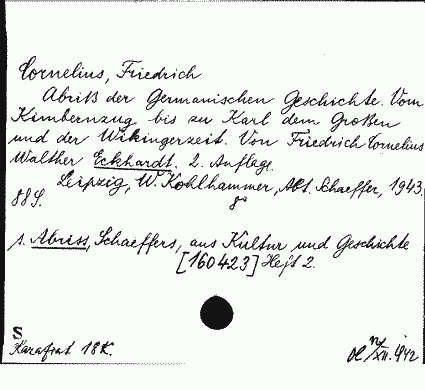 Cornelius, Friedrich
Abriß der Germanischen Geschichte. Vom
Kimbernzug bis zu Karl dem Großen
und der Wikingerzeit. Von Friedrich Cornelius
Walther Eckhardt. 2. Auflage.
Leipzig, W. Kohlhammer, Abt. Schaeffer, 1943.
88 S. 8°
s. Abriss, Schaeffers, aus Kultur und Geschichte
[160423] Heft 2.
S
Karafiat 18 K.